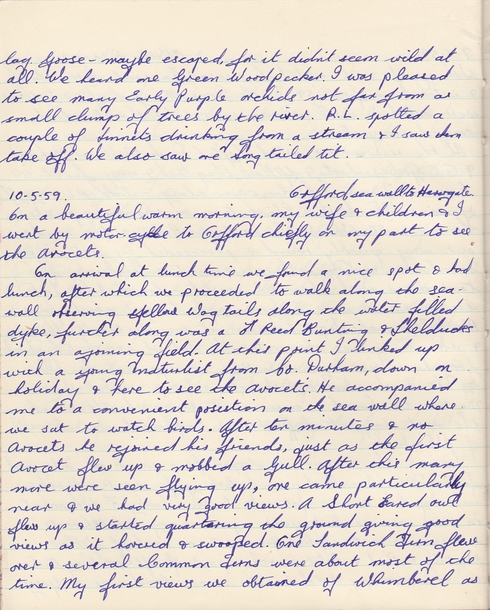 lag Goose - maybe escaped, for it didn't seem wild at
all. We heard one Green Woodpecker. I was pleased
to see many Early Purple orchids not far from a
small clump of trees by the river. R.L. spotted a
couple of Linnets drinking from a stream & I saw them
take off. We also saw one long tailed tit.
10-5-59. Orfford sea wall to Havergate
On a beautiful warm morning, my wife & children & I
went by motor-cycle to Orfford chiefly on my part to see
the Avocets.
On arrival at lunch time we found a nice spot & had
lunch, after which we proceeded to walk along the sea-
wall observing yellow Wagtails along the water filled
dyke, further along was a Reed Bunting & Shelducks
in an ajoining field. At this point I linked up
with a young naturlist from Co. Durham, down on
holiday & here to see the Avocets. He accompanied
me to a convenient position on the sea wall where
we sat to watch birds. After ten minutes & no
Avocets he rejoined his friends, just as the first
Avocet flew up & mobbed a Gull. After this many
more were seen flying up, one came particularly
near & we had very good views. A Short Eared owl
flew up & started quartering the ground giving good
views as it hovered & swooped. One Sandwich Tern flew
over & several Common Terns were about most of the
time. My first views we obtained of Whimberel as